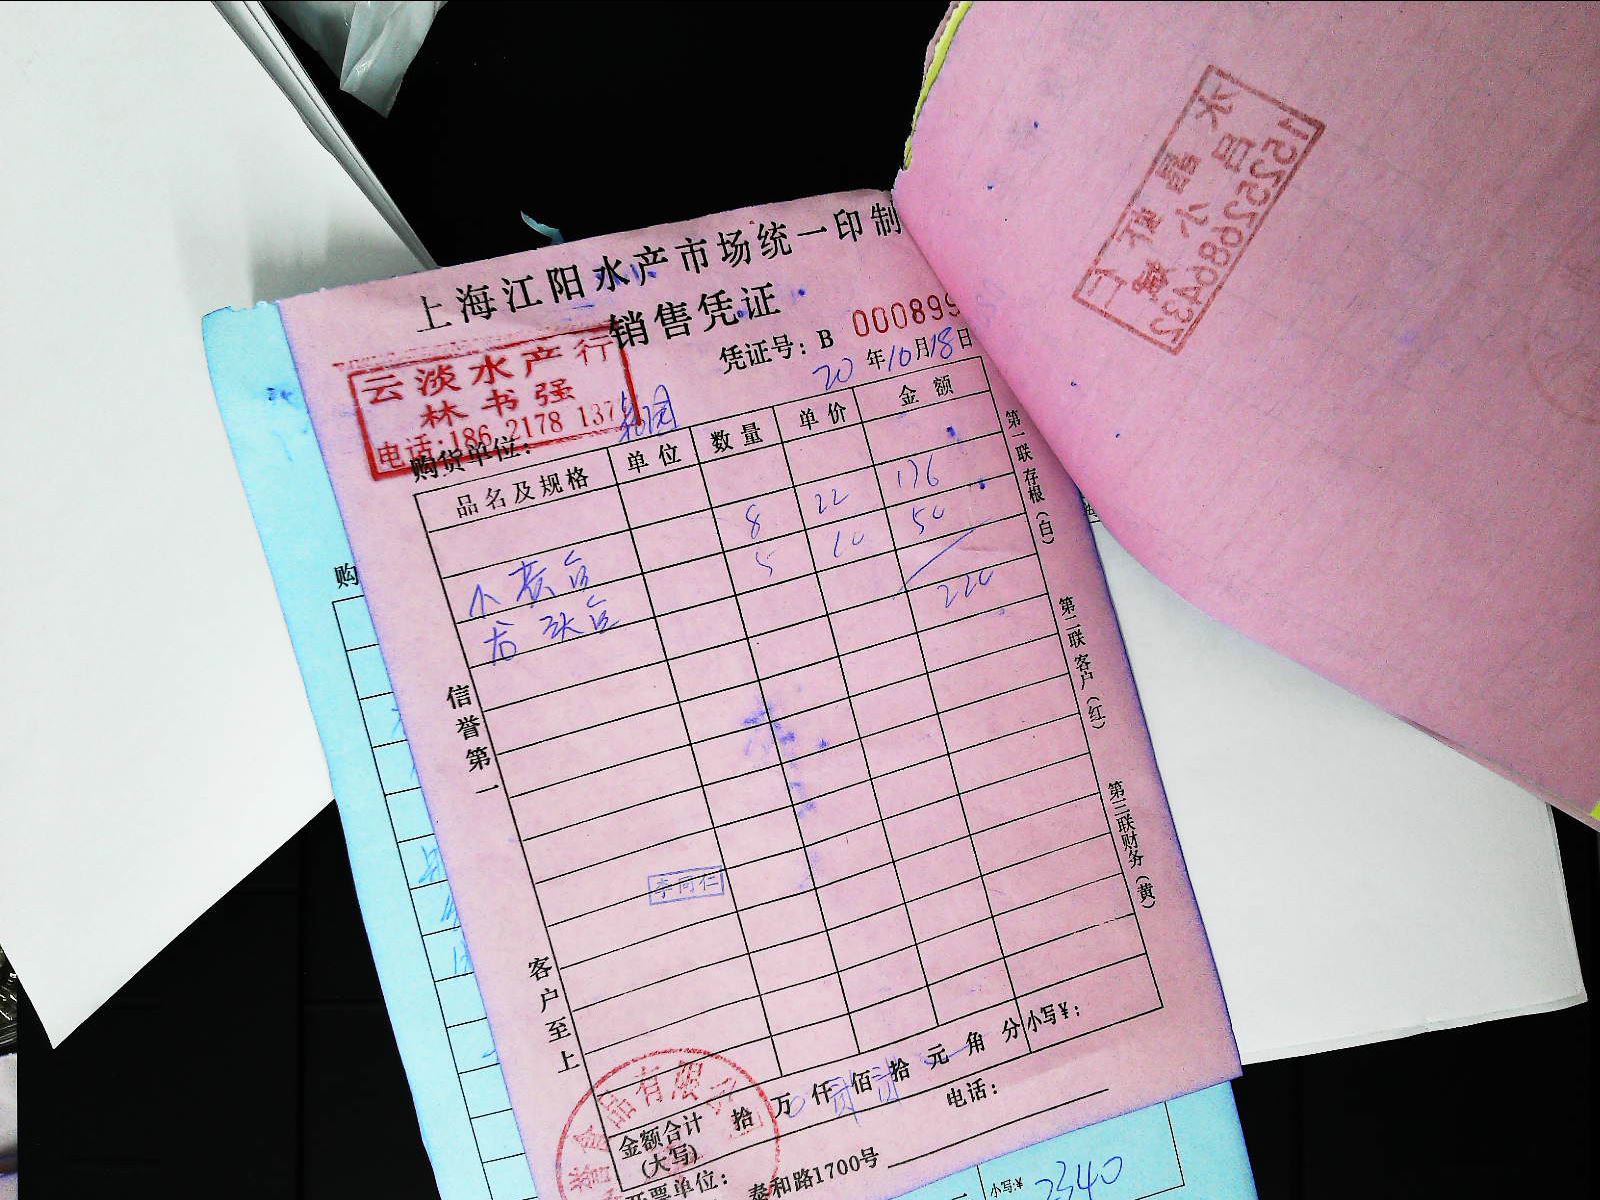 上海江阳水产市场统一印制
销售凭证
凭证号：B 000899
20 年10月18日
云淡水产行
林书强
电话:186 2178 137
购货单位：
品名及规格 单位 数量 单价 金额
8 22 176
5 10 50
226
第一联存根（白）
第二联客户（红）
第三联财务（黄）
信誉第一
客户至上
李同仁
金额合计（大写） 拾 万 仟 佰 拾 元 角 分 小写¥：
开票单位：
电话：
泰和路1700号
食品有限公
购
小写:¥ 2340
水昌晶小虾
15252686432